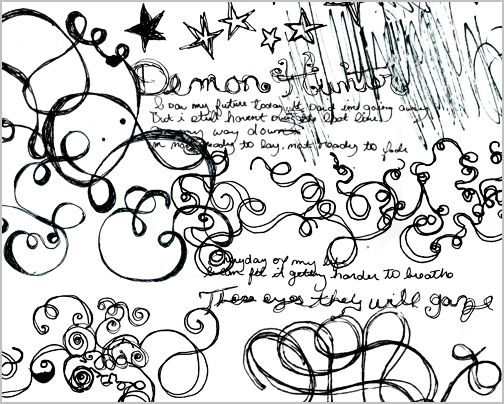 Demon Hunter
I saw my future today, it said im going away
But i still havent the last line
way down
ready to lay, not ready to fade
Everyday of my life
I can feel it getting harder to breathe
These eyes they will gaze